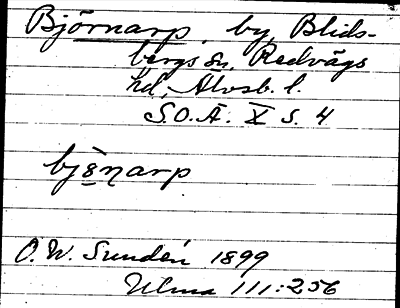 Björnarp, by, Blids-
bergs sn, Redvägs
hd, Älvsb. l.
S.O.Ä. X s. 4
O.W. Sundén 1899
Ulma 111:256